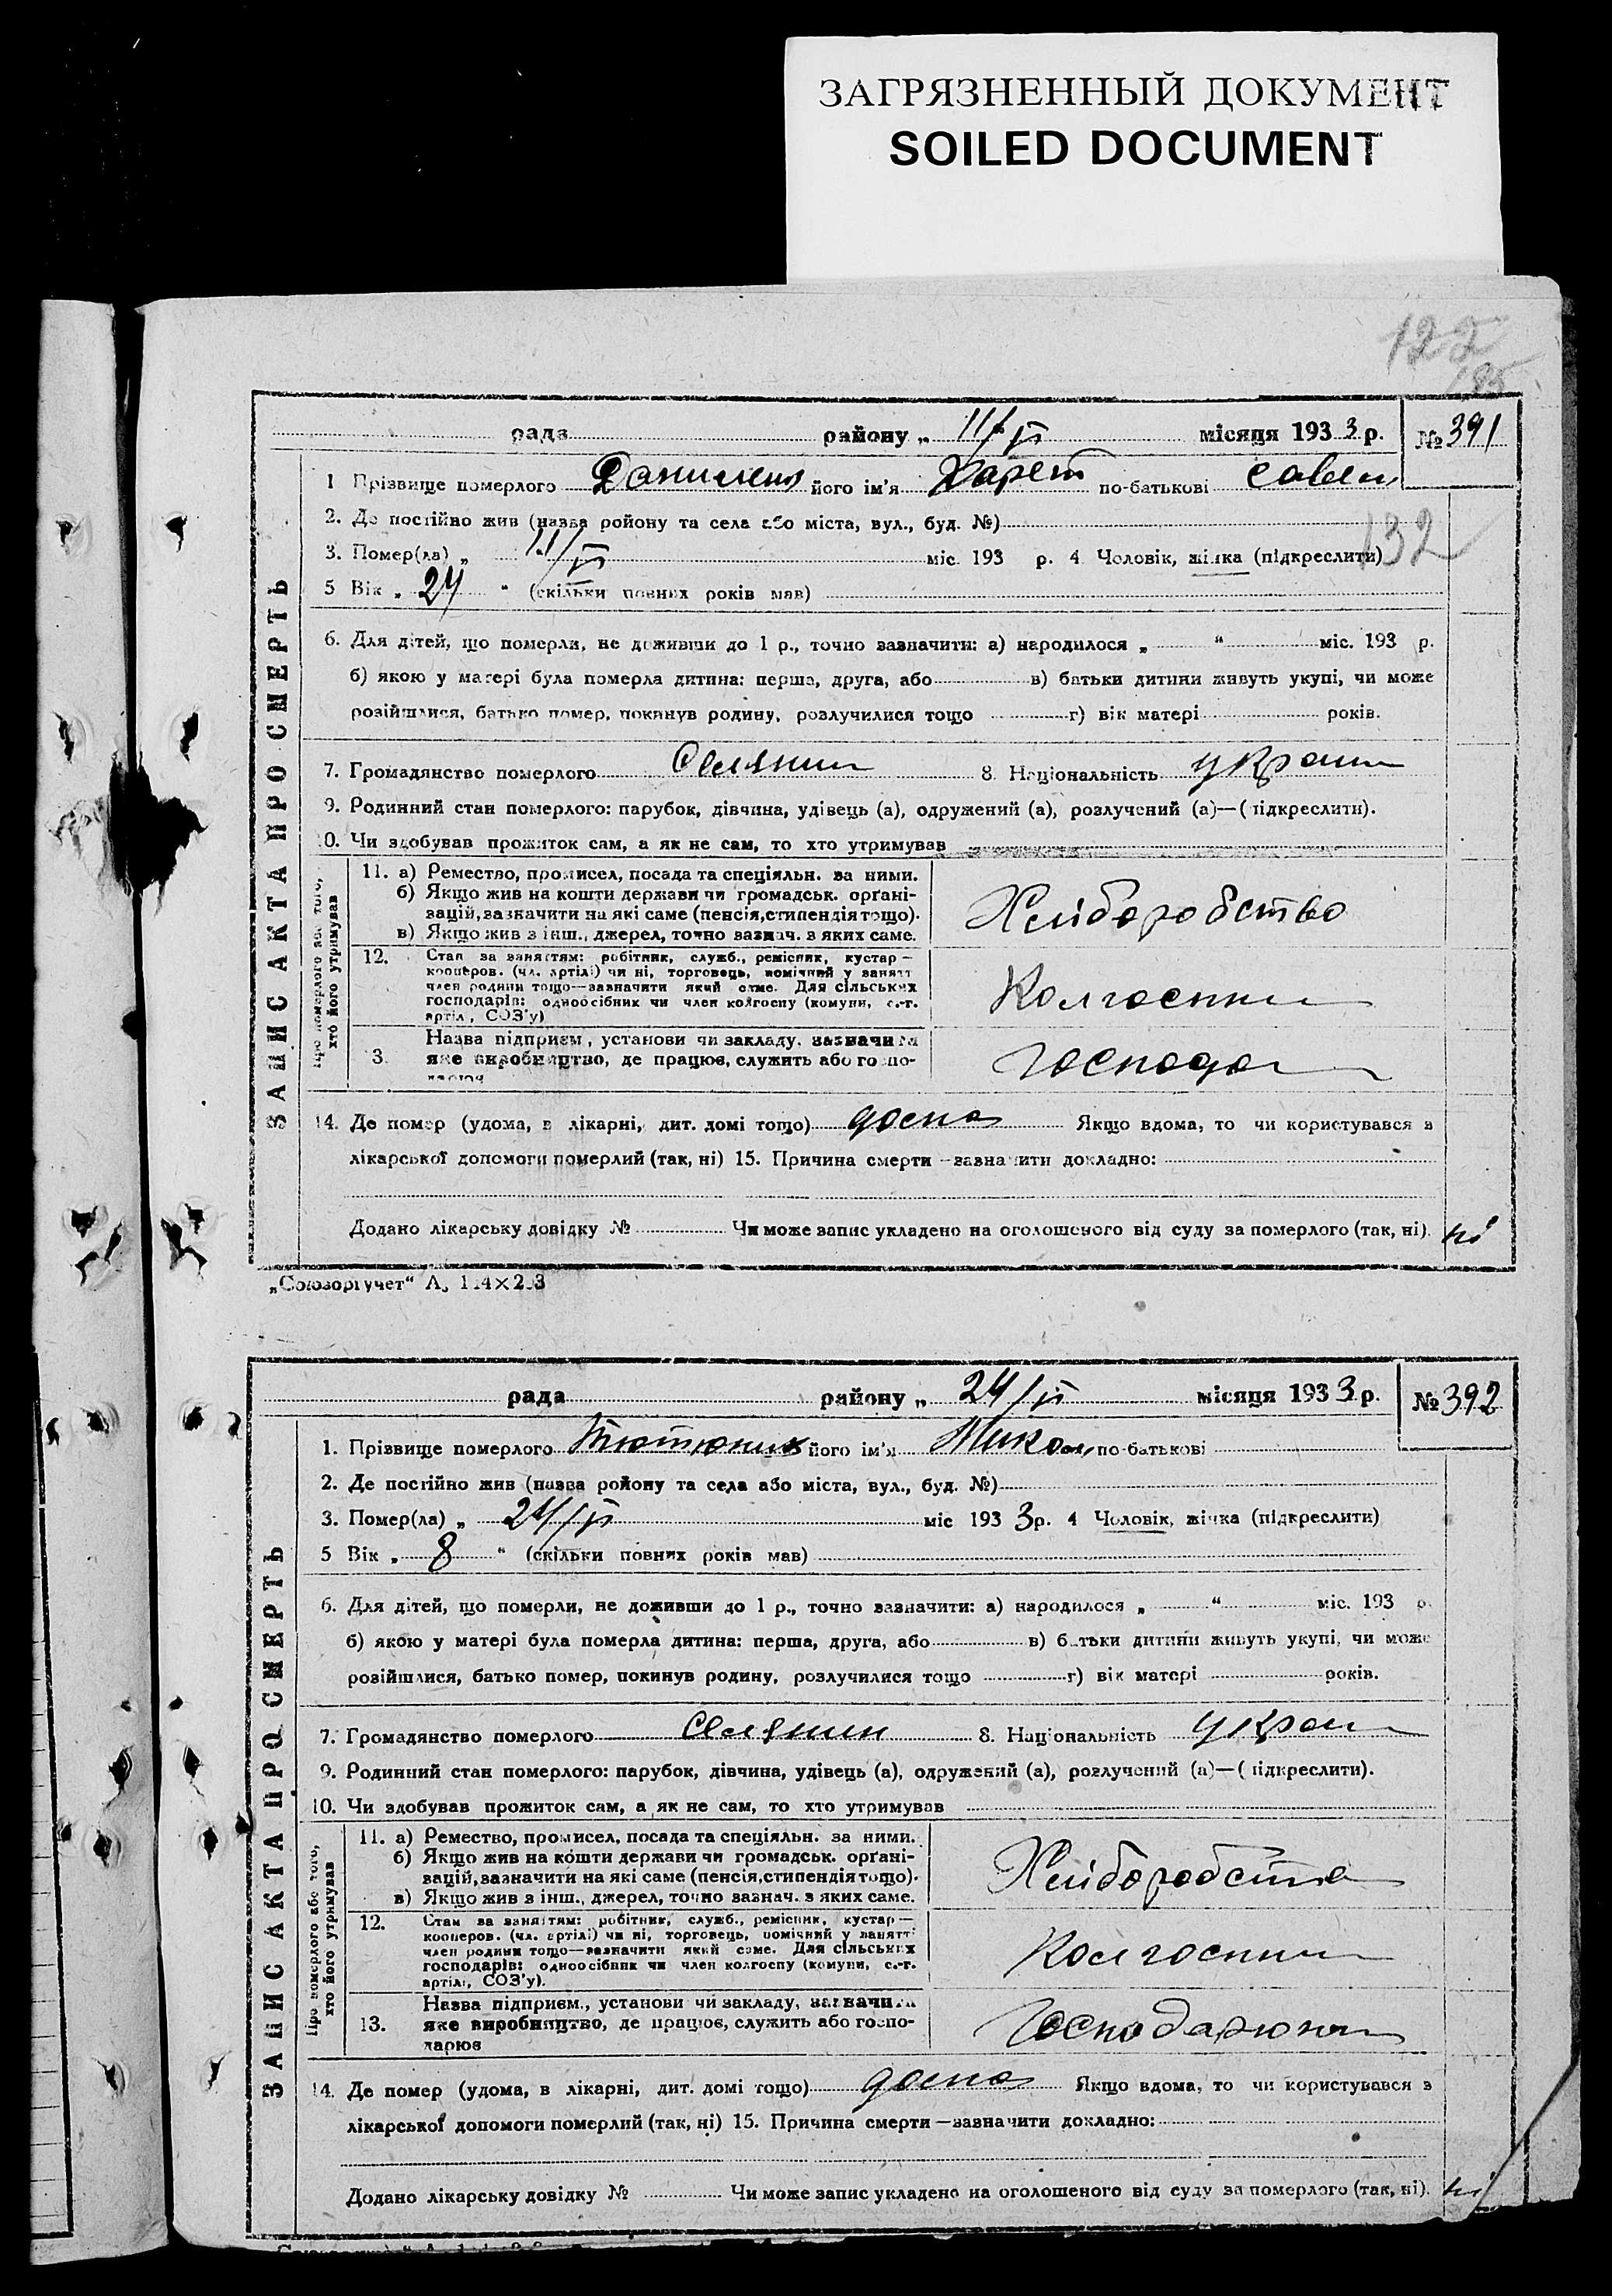 ЗАГРЯЗНЕННЫЙ ДОКУМЕНТ
SOILED DOCUMENT
122
185
рада району „ 11/VI місяця 1933 р. № 391
1 Прізвище померлого Данилен його ім'я Харет по-батькові Савел
2. Де постійно жив (назва ройону та села або міста, вул., буд. №)
132
3. Помер(ла) „ 11/VI міс. 193 р. 4 Чоловік, жінка (підкреслити)
5 Вік „ 24 “ (скільки повних років мав)
6. Для дітей, що померли, не доживши до 1 р., точно зазначити: а) народилося „ “ міс. 193 р.
б) якою у матері була померла дитина: перша, друга, або в) батьки дитини живуть укупі, чи може
розійшлися, батько помер, покинув родину, розлучилися тощо г) вік матері років.
7. Громадянство померлого Селянин 8. Національність україн
9. Родинний стан померлого: парубок, дівчина, удівець (а), одружений (а), розлучений (а)—(підкреслити).
10. Чи здобував прожиток сам, а як не сам, то хто утримував
ЗАПИС АКТА ПРО СМЕРТЬ
Про померлого або того, хто його утримував
11. а) Ремество, промисел, посада та спеціяльн. за ними.
б) Якщо жив на кошти держави чи громадськ. орґані-
зацій, зазначити на які саме (пенсія, стипендія тощо).
в) Якщо жив з інш., джерел, точно зазнач. з яких саме.
Хліборобство
12. Стан за заняттям: робітник, служб., ремісник, кустар—
кооперов. (чл. артілі) чи ні, торговець, помічний у занятт
член родини тощо—зазначити який саме. Для сільських
господарів: одноосібник чи член колгоспу (комуни, с.-г.
артіл, СОЗ'у)
Колгоспни
13. Назва підприєм., установи чи закладу, зазначити
яке виробництво, де працює, служить або госпо-
дарює
Господа
14. Де помер (удома, в лікарні, дит. домі тощо) дома Якщо вдома, то чи користувався з
лікарської допомоги померлий (так, ні) 15. Причина смерти—зазначити докладно:
Додано лікарську довідку № Чи може запис укладено на оголошеного від суду за померлого (так, ні). ні
„Союзоргучет“
рада району „ 24/VI місяця 1933 р. № 392
1. Прізвище померлого Тютюник його ім'я Микол по-батькові
2. Де постійно жив (назва ройону та села або міста, вул., буд. №)
3. Помер(ла) „ 24/VI міс 1933 р. 4 Чоловік, жінка (підкреслити)
5 Вік „ 8 “ (скільки повних років мав)
6. Для дітей, що померли, не доживши до 1 р., точно зазначити: а) народилося „ “ міс. 193 р.
б) якою у матері була померла дитина: перша, друга, або в) батьки дитини живуть укупі, чи може
розійшлися, батько помер, покинув родину, розлучилися тощо г) вік матері років.
7. Громадянство померлого Селянин 8. Національність украї
9. Родинний стан померлого: парубок, дівчина, удівець (а), одружений (а), розлучений (а)—(підкреслити).
10. Чи здобував прожиток сам, а як не сам, то хто утримував
ЗАПИС АКТА ПРО СМЕРТЬ
Про померлого або того, хто його утримував
11. а) Ремество, промисел, посада та спеціяльн. за ними.
б) Якщо жив на кошти держави чи громадськ. орґані-
зацій, зазначити на які саме (пенсія, стипендія тощо).
в) Якщо жив з інш., джерел, точно зазнач. з яких саме.
Хліборобства
12. Стан за заняттям: робітник, служб., ремісник, кустар—
кооперов. (чл. артілі) чи ні, торговець, помічний у занятт
член родини тощо—зазначити який саме. Для сільських
господарів: одноосібник чи член колгоспу (комуни, с.-г.
артілі, СОЗ'у).
Колгоспни
13. Назва підприєм., установи чи закладу, зазначити
яке виробництво, де працює, служить або госпо-
дарює
14. Де помер (удома, в лікарні, дит. домі тощо) дома Якщо вдома, то чи користувався з
лікарської допомоги померлий (так, ні) 15. Причина смерти—зазначити докладно:
Додано лікарську довідку № Чи може запис укладено на оголошеного від суду за померлого (так, ні). ні